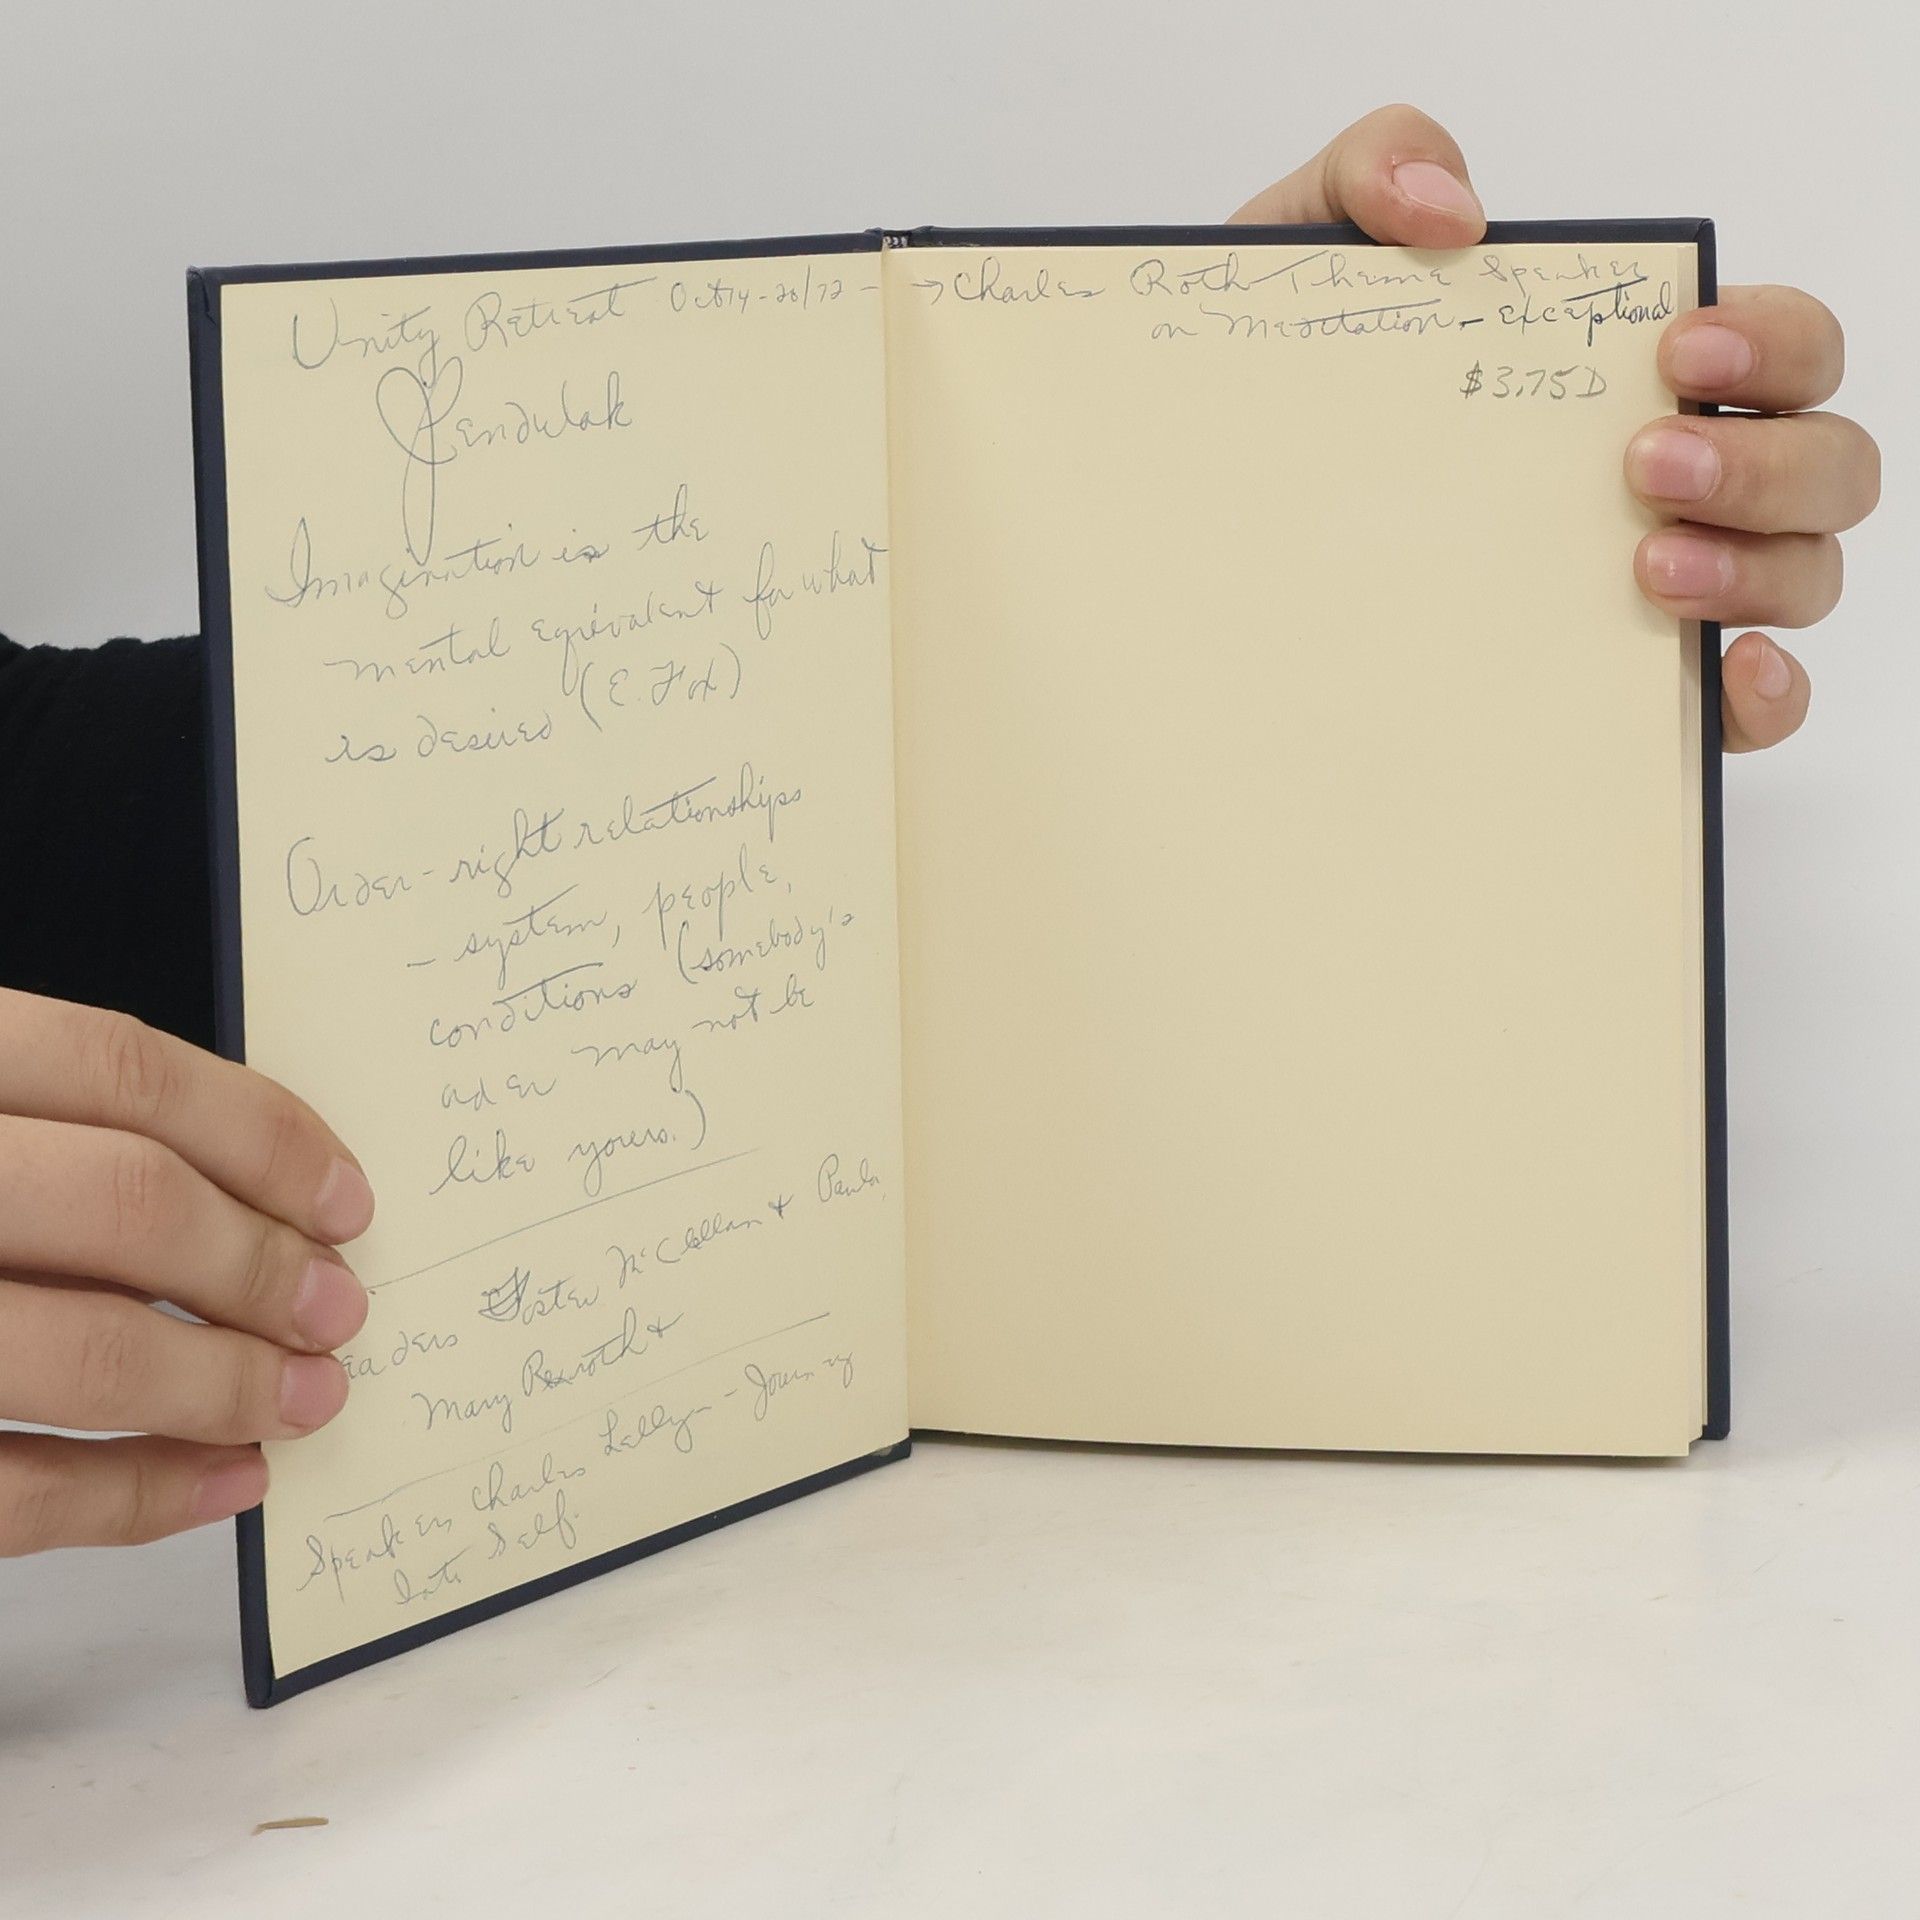 Unity Retreat Oct 14-20/72 -
Jendulak
Imagination is the
mental equivalent for what
is desired (E. Fox)
Order - right relationships
- system, people,
conditions (somebody's
order may not be
like yours.)
Foster McClellan & Paula,
Mary Rexroth &
Speakers Charles Lelly - Journey
Into Self.
→ Charles Roth Theme Speaker
on Meditation - exceptional
$3.75 D